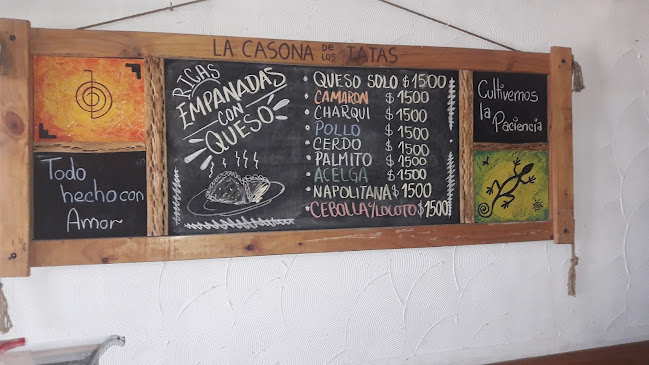 LA CASONA DE LOS TATAS
RICAS
EMPANADAS
CON
QUESO
• QUESO SOLO $1500
• CAMARON $1500
• CHARQUI $1500
• POLLO $1500
• CERDO $1500
• PALMITO $1500
• ACELGA $1500
• NAPOLITANA $1500
• CEBOLLA C/LOCOTO $1500
Todo
hecho con
Amor
Cultivemos
la
Paciencia